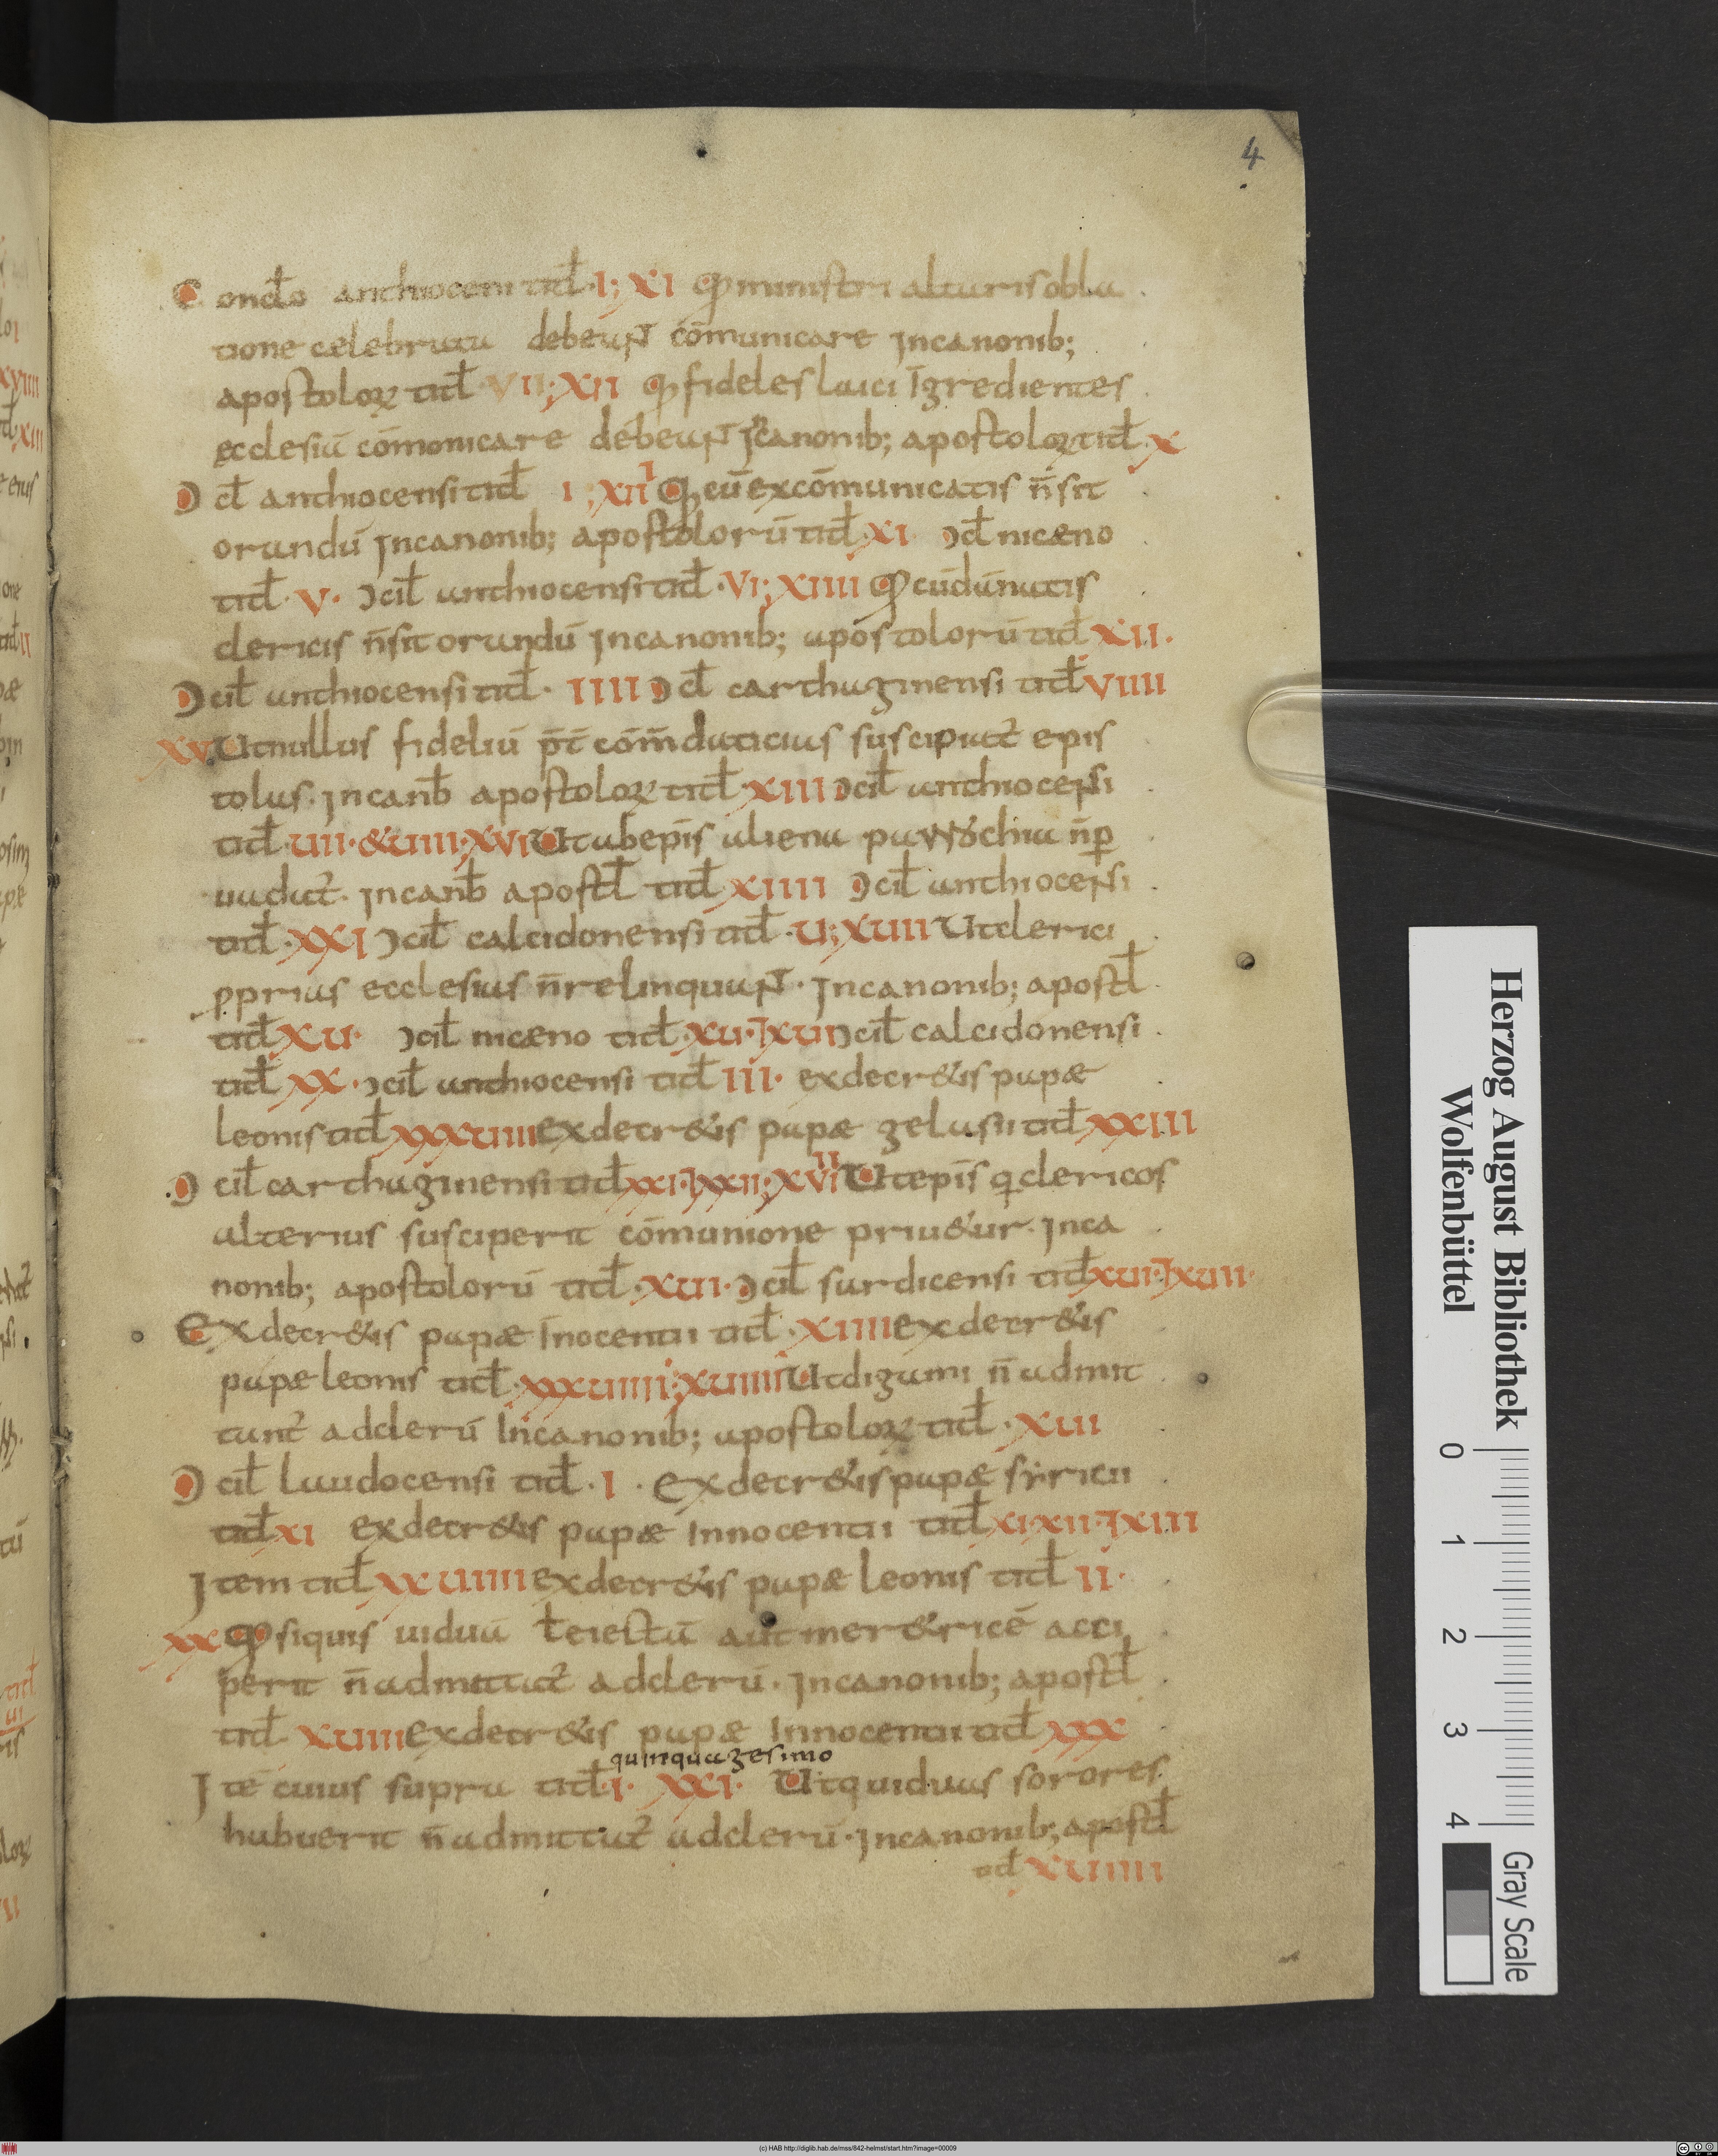 4
Concło anthioceni titł·I; XI Qđ ministri altaris obla
tione celebrata debeunt cōmunicare Incanonib;
apostoloꝝ titł·VII; XII Qđ fideles laici īgredientes
ecclesiā cōmonicare debeunt Incanonib; apostoloꝝ titł·X
Ɔcł anthiocensi titł I; XIII Qđ cū excōmunicatis n̄ sit
orandū Incanonib; apostolorū titł·XI Ɔcł nicæno
titł·V· Ɔcil̄ anthiocensi titł·VI; XIIII Qđ cū dānatis
clericis n̄ sit orandū Incanonib; apostolorū titł XII·
Ɔcil̄ anthiocensi titł· IIII Ɔcł carthaginensi titł VIIII
XV· Ut nullus fideliū p̄t cōm̄daticias suscipiat̄ epis
tolas· Incanb̄ apostoloꝝ titł·XIII Ɔcil̄ anthiocensi
titł·UII·&UIII; XVI Utab ep̄is aliena parrochia n̄ p
uadat̄· Incanb̄ apostł titł XIIII Ɔcil̄ anthiocensi
titł·XXI Ɔcil̄ calcidonensi titł·U; XUII Ut clerici
pprias ecclesias n̄ relinquant· Incanonib; apostł
titł XU· Ɔcil̄ nicæno titł·XU·⁊XUI Ɔcil̄ calcidonensi
titł XX· Ɔcil̄ anthiocensi titł III· ex decr&is papæ
leonis titł XXXUIIII ex decr&is papæ gelasii titł XXIII
Ɔcil̄ carthaginensi titł XXI·⁊XXII; XVIII Ut ep̄is q̄ clericos
alterius susciperit cōmunione priu&ur· Inca
nonib; apostolorū titł·XUI· Ɔcil̄ sardicensi titł XUI·⁊XUII·
Ex decr&is papæ Inocentii titł·XIIII ex decr&is
papæ leonis titł·XXXUIIII; XUIIII Ut digami n̄ admit
tant̄ ad clerū Incanonib; apostoloꝝ titł·XUII
Ɔcil̄ laudocensi titł·I· Ex decr&is papæ syricii
titł XI ex decr&is papæ Innocentii titł XI·XII·⁊XIII
Item titł XXUIIII ex decr&is papæ leonis titł II·
XX Qđ siquis uiduā ł eiectā aut mer&ricē acci
perit n̄ admittat̄ ad clerū· Incanonib; apostł
titł XUIII Ex decr&is papæ Innocentii titł XXX
quinquagesimo
Itē cuius supra titł·I· XXI· Ut q̄ui duas sorores
habuerit n̄ admittat̄ ad clerū· Incanonib; apostł
titł XUIIII
Herzog August Bibliothek
Wolfenbüttel
0 1 2 3 4
Gray Scale
(c) HAB http://diglib.hab.de/mss/842-helmst/start.htm?image=00009